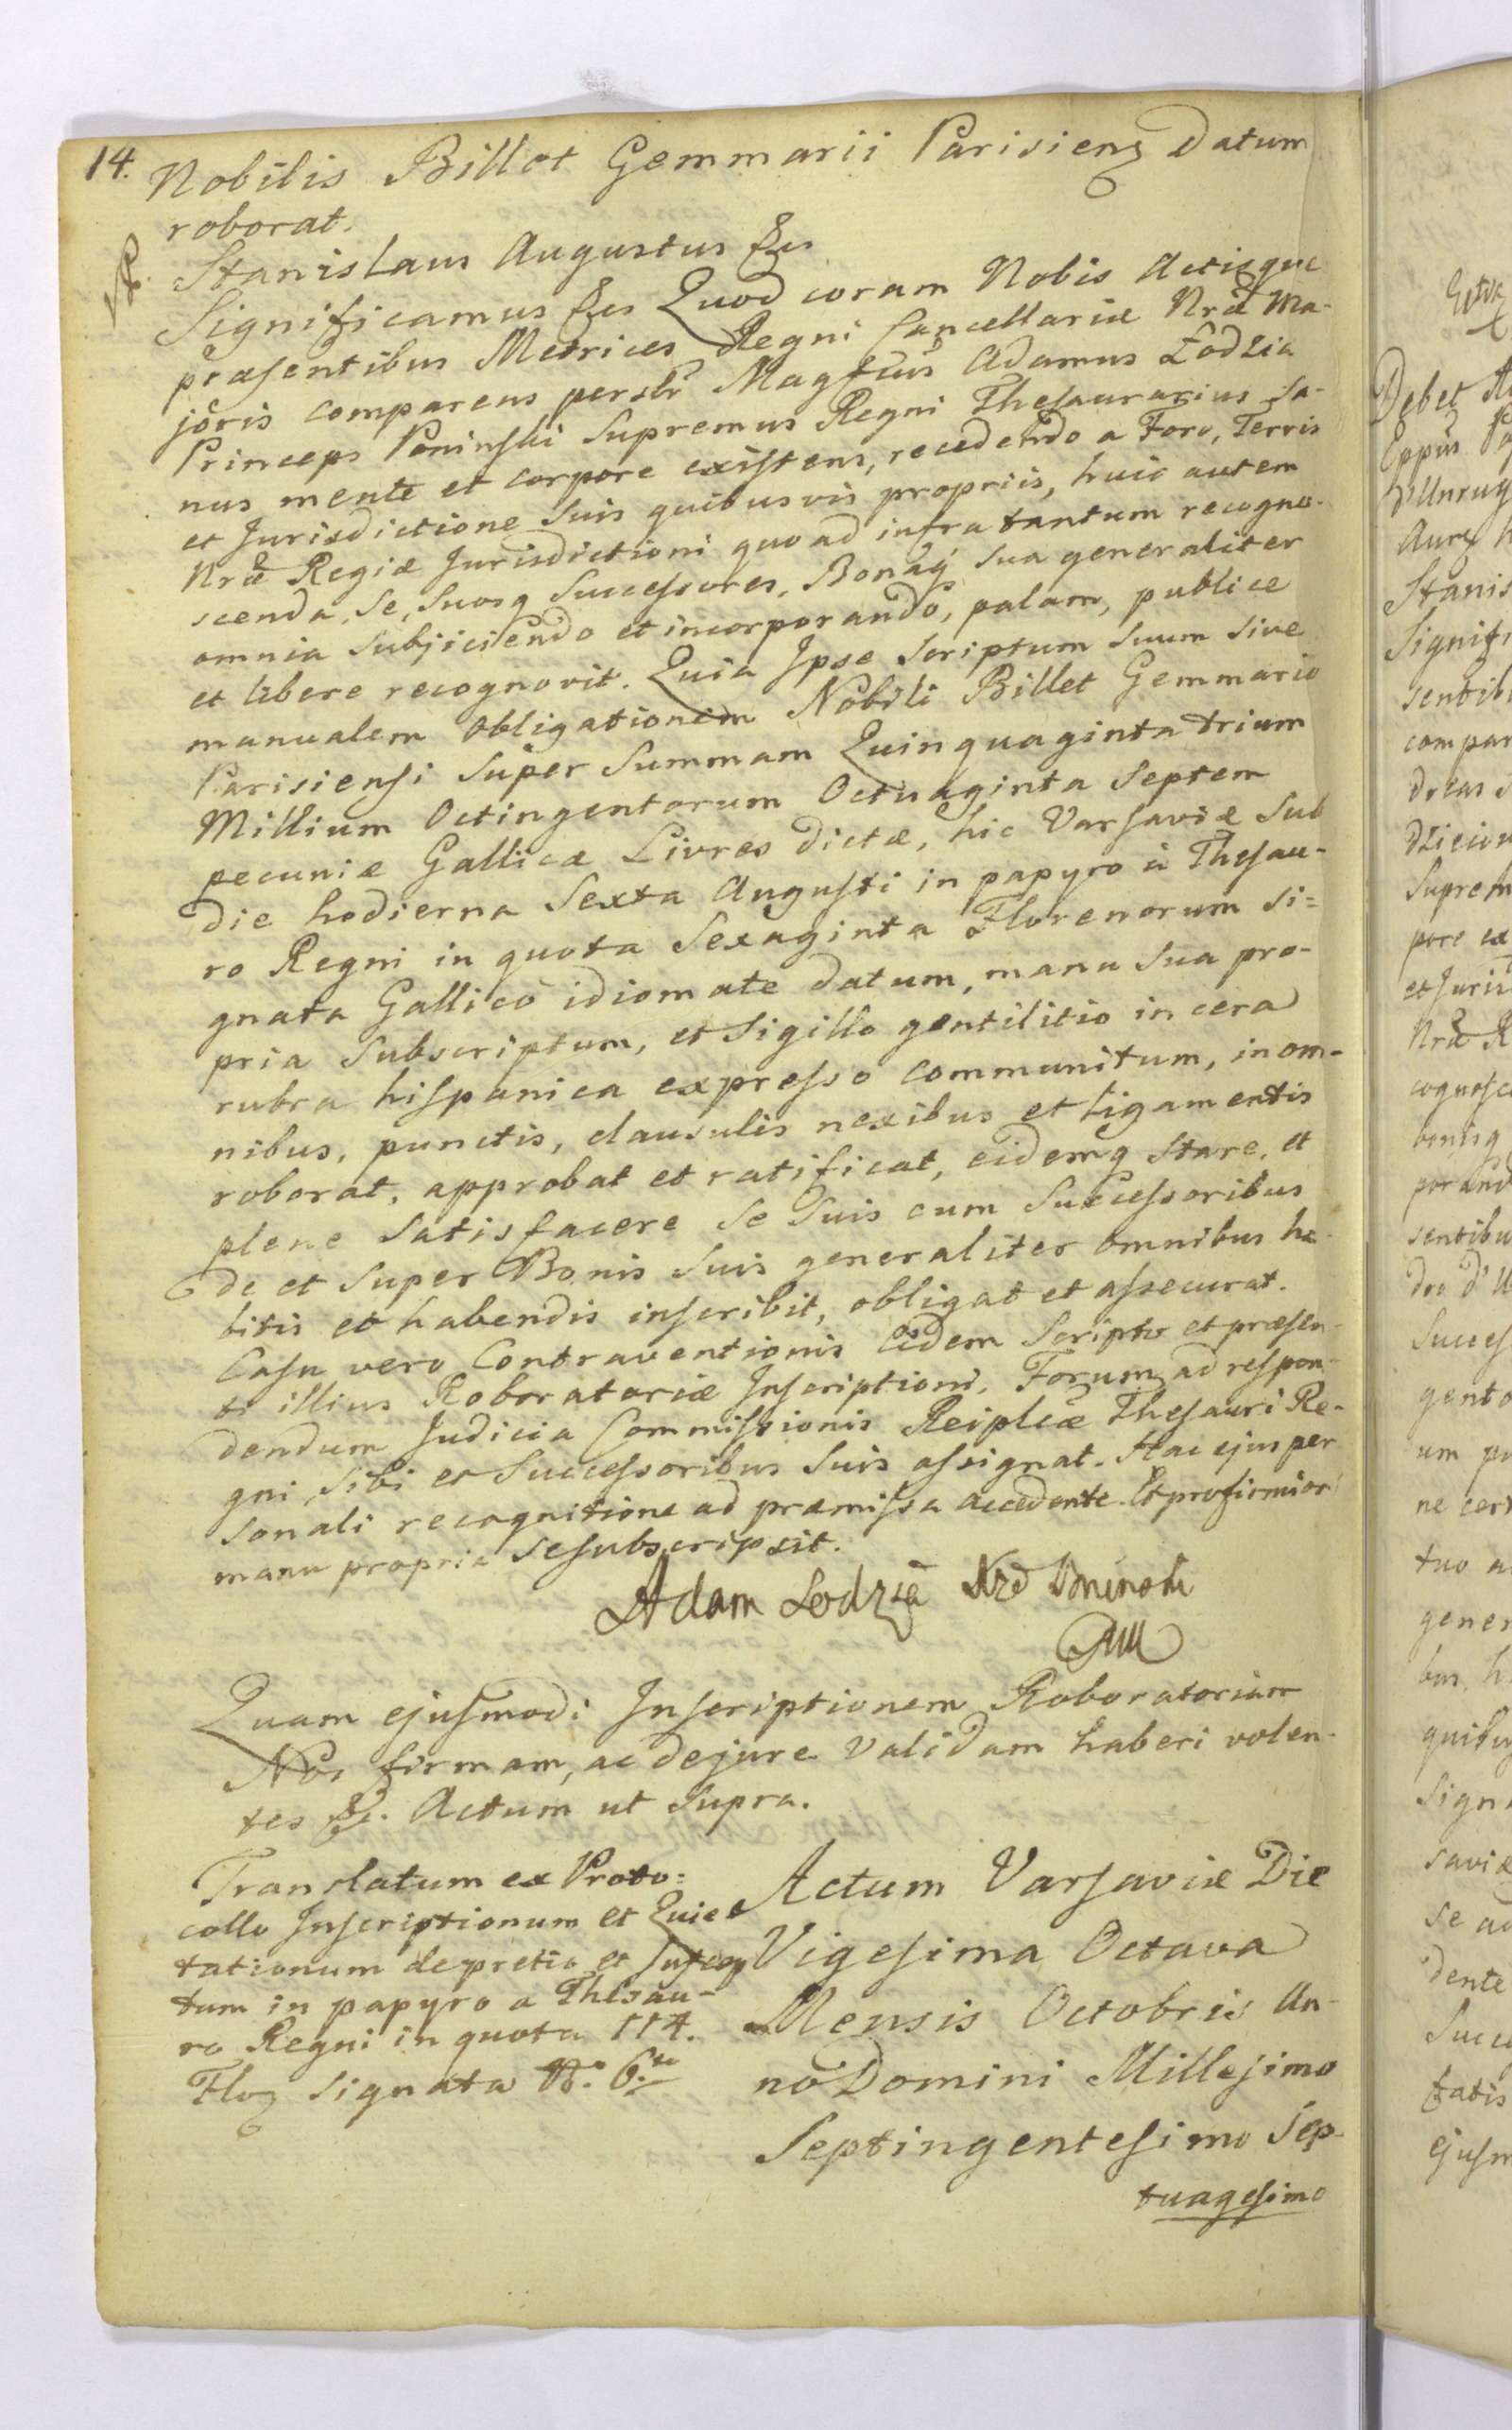 14.
Nobilis Billet Gemmarii Parisiens Datum
roborat.
Stanislaus Augustus &es
Significamus &es Quod coram Nobis Actisque
præsentibus Metrices Regni Cancellariæ Nræ Ma-
joris comparens persltr Magfcus Adamus Łodzia
Princeps Poninski Supremus Regni Thesaurarius Sa-
nus mente et corpore existens, recedendo a Foro, Terris
et Jurisdictione Suis quibusvis propriis, huic autem
Nræ Regiæ Jurisdictioni quo ad infra tantum recogno-
scenda, Se, Suosq Successores, Bonaq Sua generaliter
omnia Subjiciendo et incorporando, palam, publice
et libere recognovit. Quia Ipse Scriptum Suum Sive
manualem Obligationem Nobili Billet Gemmario
Parisiensi Super Summam Quinquaginta trium
Millium Octingentorum Octuaginta Septem
pecuniæ Gallicæ Livres dictæ, hic Varsaviæ Sub
die hodierna Sexta Augusti in papyro à Thesau-
ro Regni in quota Sexaginta Florenorum Si=
gnata Gallico idiomate datum, manu Sua pro-
pria Subscriptum, et Sigillo gentilitio in cera
rubra hispanica expresso communitum, in om-
nibus, punctis, clausulis nexibus et ligamentis
roborat, approbat et ratificat, eidemq Stare, et
plene Satisfacere Se Suis cum Successoribus
de et Super Bonis Suis generaliter omnibus ha-
bitis et habendis inscribit, obligat et assecurat.
Casu vero Contraventionis eidem Scripto et præsen-
ti illius Roboratoriæ Inscriptioni, Forum ad respon-
dendum Judicia Commissionis Reiplcæ Thesauri Re-
gni, Sibi et Successoribus Suis assignat. Hac ejus per
sonali recognitione ad præmissa accedente. Et pro firmiori
manu propria Se subscripsit.
Adam Lodzia Xże Poninski
Quam ejusmodi Inscriptionem Roboratoriam
Nos firmam, ac de jure validam haberi volen-
tes &. Actum ut Supra.
Translatum ex Proto=
collo Inscriptionum et Quie
tationum de pretio et
tum in papyro a Thesau-
ro Regni in quota 114.
Flor signata N° 6to
Actum Varsaviæ Die
Vigesima Octava
Mensis Octobris An-
no Domini Millesimo
Septingentesimo Sep-
tuagesimo
Debet
Stanis
Signifi
sentib
compar
Suprem
pore ex
et Juris
Nræ R
porand
sentibu
Succes
gento
um
ne
tuo a
gener
bus, h
quibu
Signa
saviæ
se
dente
Succ
tatis
Ejusm